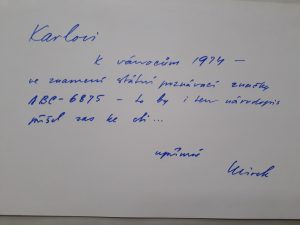 Karlovi
K vánocům 1974 —
ve znamení státní poznávací značky
ABC-6875 — to by i ten národopis
přišel zas ke cti...
upřímně
Mirek